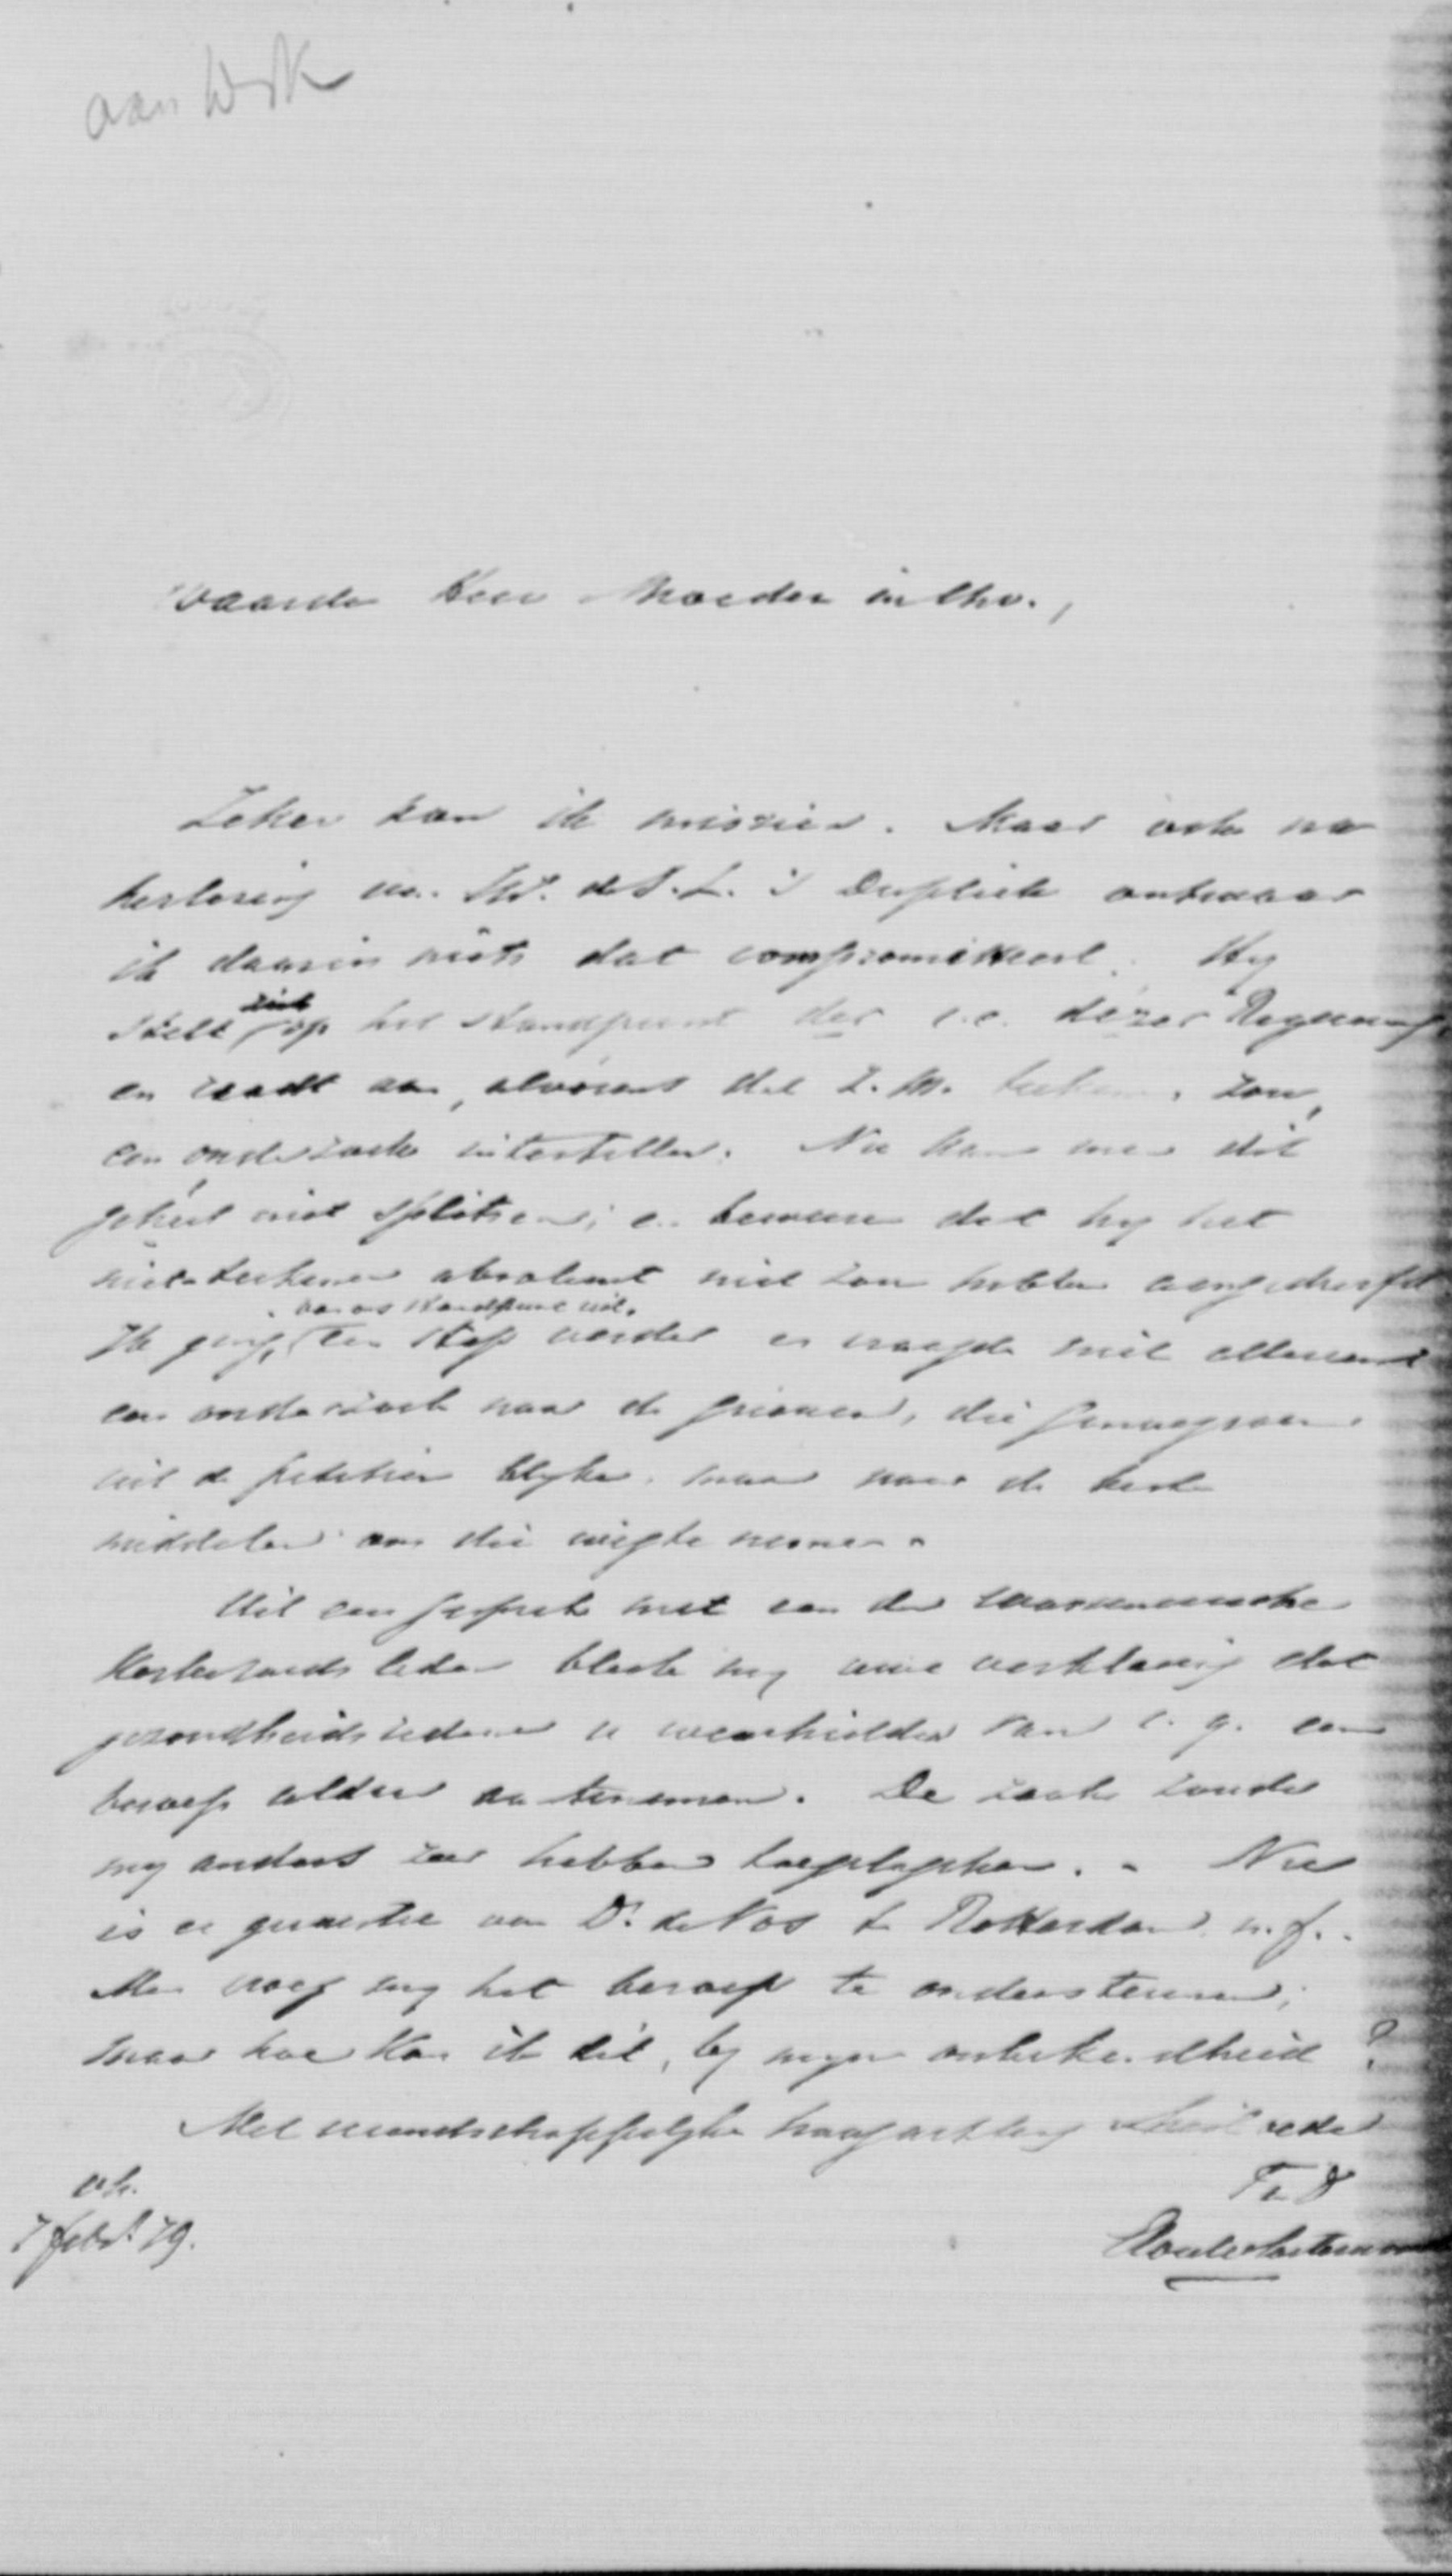 aan
waarde Heer Broeder in Chr.,
Zeker kan ik missien. Maar ook na
herlezing van de S. L.'s Dupliek ontwaar
ik daarin niets dat compromitteert. Hij
stelt zich op het standpunt der c.c. dezer Regering,
en raadt aan, alvorens dat Z. M. teeken. zou,
een onderzoek intestellen. Nu kan men dit
geheel niet splitsen; en beweren dat hij het
niet-teekenen absoluut niet zou hebben
van ons standpunt uit.
Ik ging een stap verder en vraagde niet alleen
een onderzoek naar de grieven, die
uit de petitien blijken maar naar de beste
middelen om die wegte nemen.
Uit een gesprek met een der
Kerkeraadsleden bleek mij uwe verklaring dat
gezondheidsredenen u weerhielden van c. q. een
beroep aldaar aantenemen. De zaak zoude
mij anders zeer hebben toegelagchen. - Nu
is er quaestie van Dr. de Vos te Rotterdam n.f.
Men vroeg mij het beroep te ondersteunen;
maar hoe kan ik dit, bij mijne onbekendheid ?
Met vriendschappelijke hoogachting
vh. T. à V
7 febr. 79.
Elout v Soeterwoude